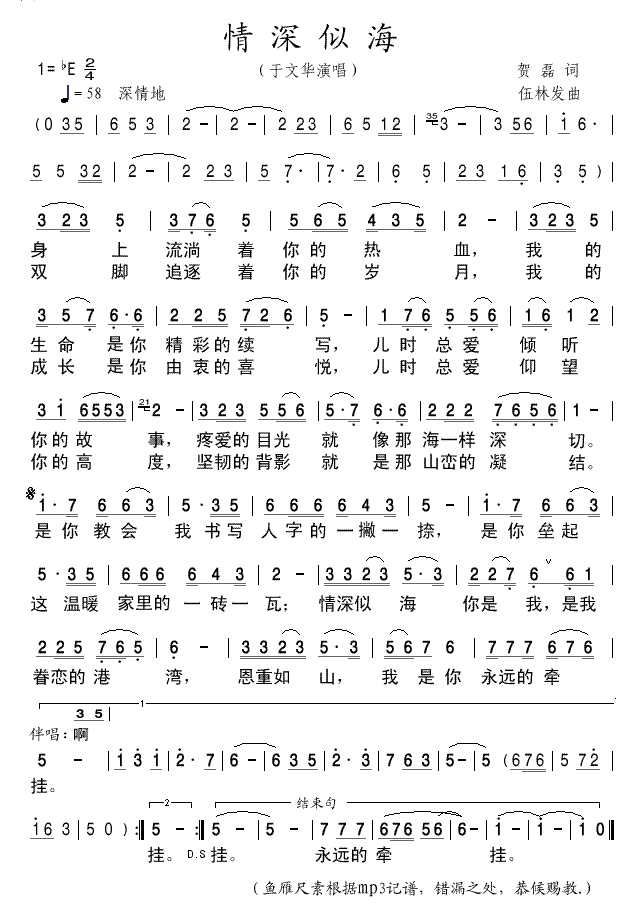 情深似海
1=♭E 2/4 (于文华演唱) 贺磊 词
♩=58 深情地 伍林发曲
(0 35 | 6 5 3 | 2 - | 2 - | 2 23 | 6 5 12 | 35 3 - | 3 56 | i 6· |
5 5 32 | 2 - | 2 23 | 5 7· | 7· 2 | 6 5 | 23 16 | 3 5 )|
3 23 5 | 376 5 | 5 65 435 | 2 - | 323 5 |
身 上 流淌 着 你的 热 血， 我 的
双 脚 追逐 着 你的 岁 月， 我 的
3 57 6·6 | 225 726 | 5 - | 1 76 5 56 | 16 12 |
生 命 是你 精彩的续 写， 儿时 总爱 倾 听
成 长 是你 由衷的喜 悦， 儿时 总爱 仰 望
3 i 6553 | 21 2 - | 323 556 | 5·7 6·6 | 222 7656 | 1 - |
你的故 事， 疼爱的目光 就 像那 海一样 深 切。
你的高 度， 坚韧的背影 就 是那 山峦的 凝 结。
i·7 663 | 5·35 | 666 643 | 5 - | i·7 663 |
是你 教会 我 书写 人字的一撇一 捺， 是你 垒起
5·35 | 666 643 | 2 - | 3323 5·3 | 227 6 61 |
这 温暖 家里的 一砖一 瓦； 情深似 海 你是 我，是我
225 765 | 6 - | 3323 5·3 | 567 6 | 777 676 |
眷恋的 港 湾， 恩重如 山， 我 是 你 永远的 牵
1
3 5
伴唱：啊
5 - | i 3 i | 2·7 | 6 - | 635 | 2·3 | 763 | 5 - | 5 (676 | 572 |
挂。
i63 | 50 ):‖ 2 5 - :‖ 结束句 5 - | 5 - | 777 | 676 56 | 6 - | i - | i - | i 0 ‖
挂。 D.S 挂。 永远的 牵 挂。
（鱼雁尺素根据mp3记谱，错漏之处，恭候赐教.）